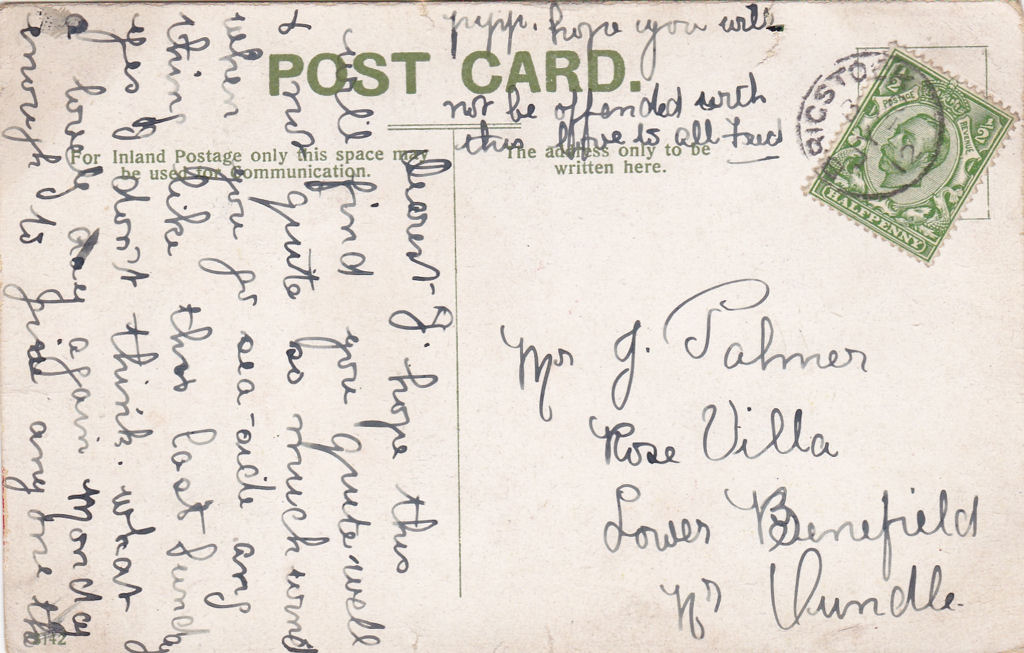 POST CARD.
For Inland Postage only this space may
be used for Communication.
The address only to be
written here.
Dearest J. hope this
will find you quite well
& not quite so much wind
when you go sea-side any
thing like this last Sunday
yes I don't think. what
a lovely day again Monday
enough to give any one the
pypp. hope you will
not be offended with
this love to all Fred
RIGSTOCK
12
½
½
POSTAGE
REVENUE
HALFPENNY
Mr J. Palmer
Rose Villa
Lower Benefield
Nr Oundle.